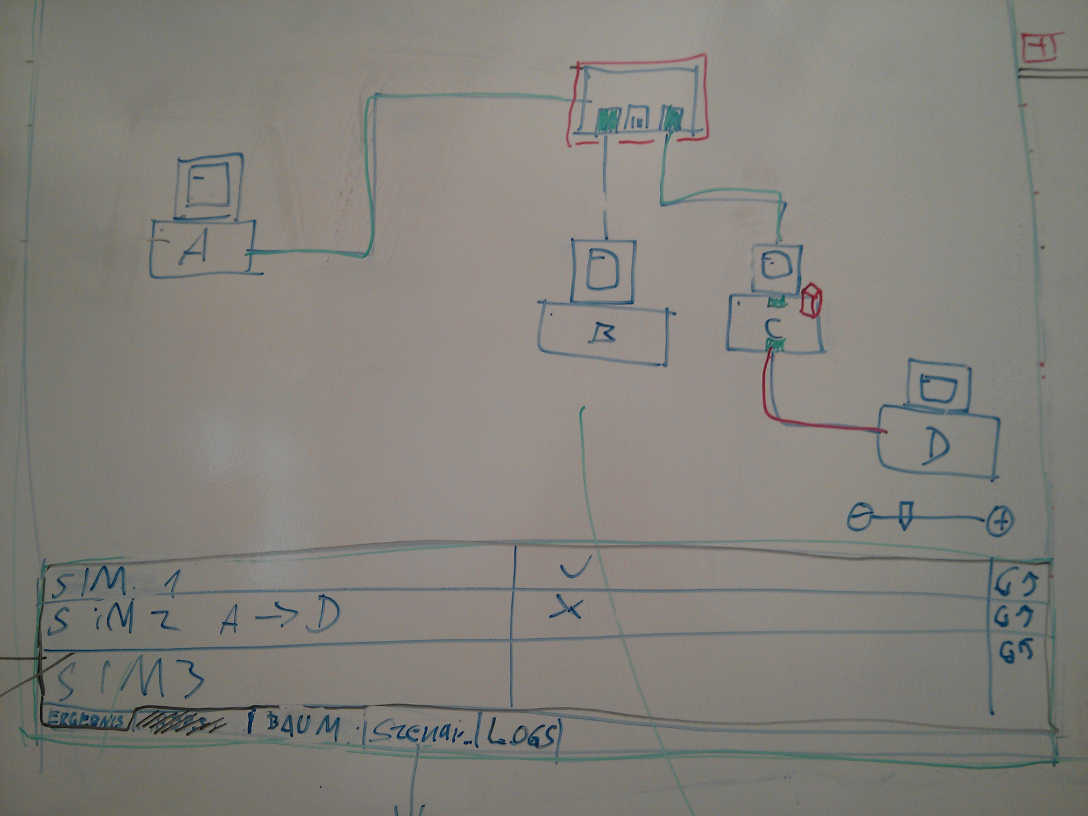 A
B
C
D
SIM. 1
SiM 2 A → D
SIM3
ERGEBNIS
BAUM
SZENAR.
LOGS